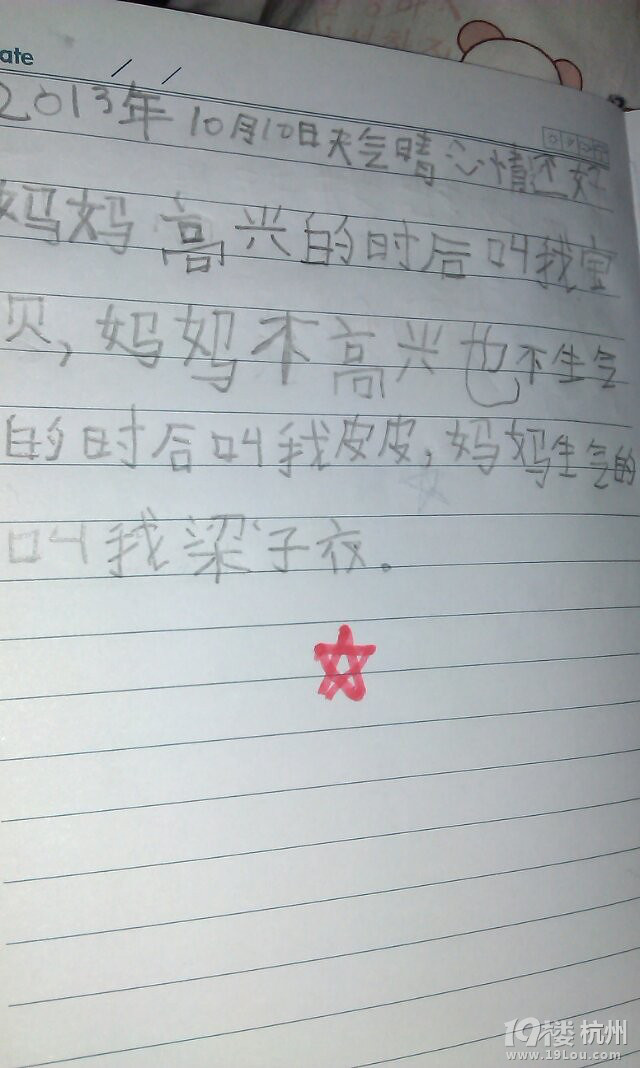 ate / /
2013年10月10日天气晴心情还好
妈妈高兴的时后叫我宝
贝,妈妈不高兴也不生气
的时后叫我皮皮,妈妈生气的
叫我梁子夜。
19楼 杭州
www.19Lou.com